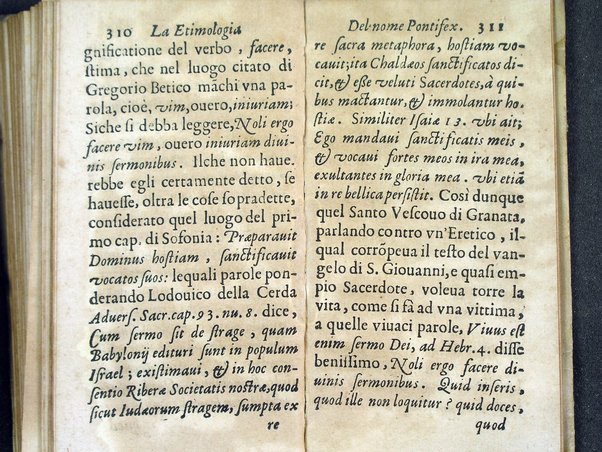 310 La Etimologia
gnificatione del verbo, facere,
stima, che nel luogo citato di
Gregorio Betico mãchi vna pa-
rola, cioè, vim, ouero, iniuriam;
Siche si debba leggere, Noli ergo
facere vim, ouero iniuriam diui-
nis sermonibus. Ilche non haue.
rebbe egli certamente detto, se
hauesse, oltra le cose sopradette,
considerato quel luogo del pri-
mo cap. di Sofonia: Præparauit
Dominus hostiam, sanctificauit
vocatos suos: lequali parole pon-
derando Lodouico della Cerda
Aduers. Sacr. cap. 93. nu. 8. dice,
Cum sermo sit de strage, quam
Babylonij edituri sunt in populum
Israel; existimaui, & in hoc con-
sentio Riberæ Societatis nostræ, quod
sicut Iudæorum stragem, sumpta ex
re
Del nome Pontifex. 311
re sacra metaphora, hostiam vo-
cauit; ita Chaldæos sanctificatos di-
cit, & esse veluti Sacerdotes, à qui-
bus mactantur, & immolantur ho-
stiæ. Similiter Isaiæ 13. vbi ait;
Ego mandaui sanctificatis meis,
& vocaui fortes meos in ira mea,
exultantes in gloria mea. vbi etiã
in re bellica persistit. Così dunque
quel Santo Vescouo di Granata,
parlando contro vn'Eretico, il-
qual corrõpeua il testo del van-
gelo di S. Giouanni, e quasi em-
pio Sacerdote, voleua torre la
vita, come si fà ad vna vittima,
a quelle viuaci parole, Viuus est
enim sermo Dei, ad Hebr. 4. disse
benissimo, Noli ergo facere di-
uinis sermonibus. Quid inseris,
quod ille non loquitur? quid doces,
quod